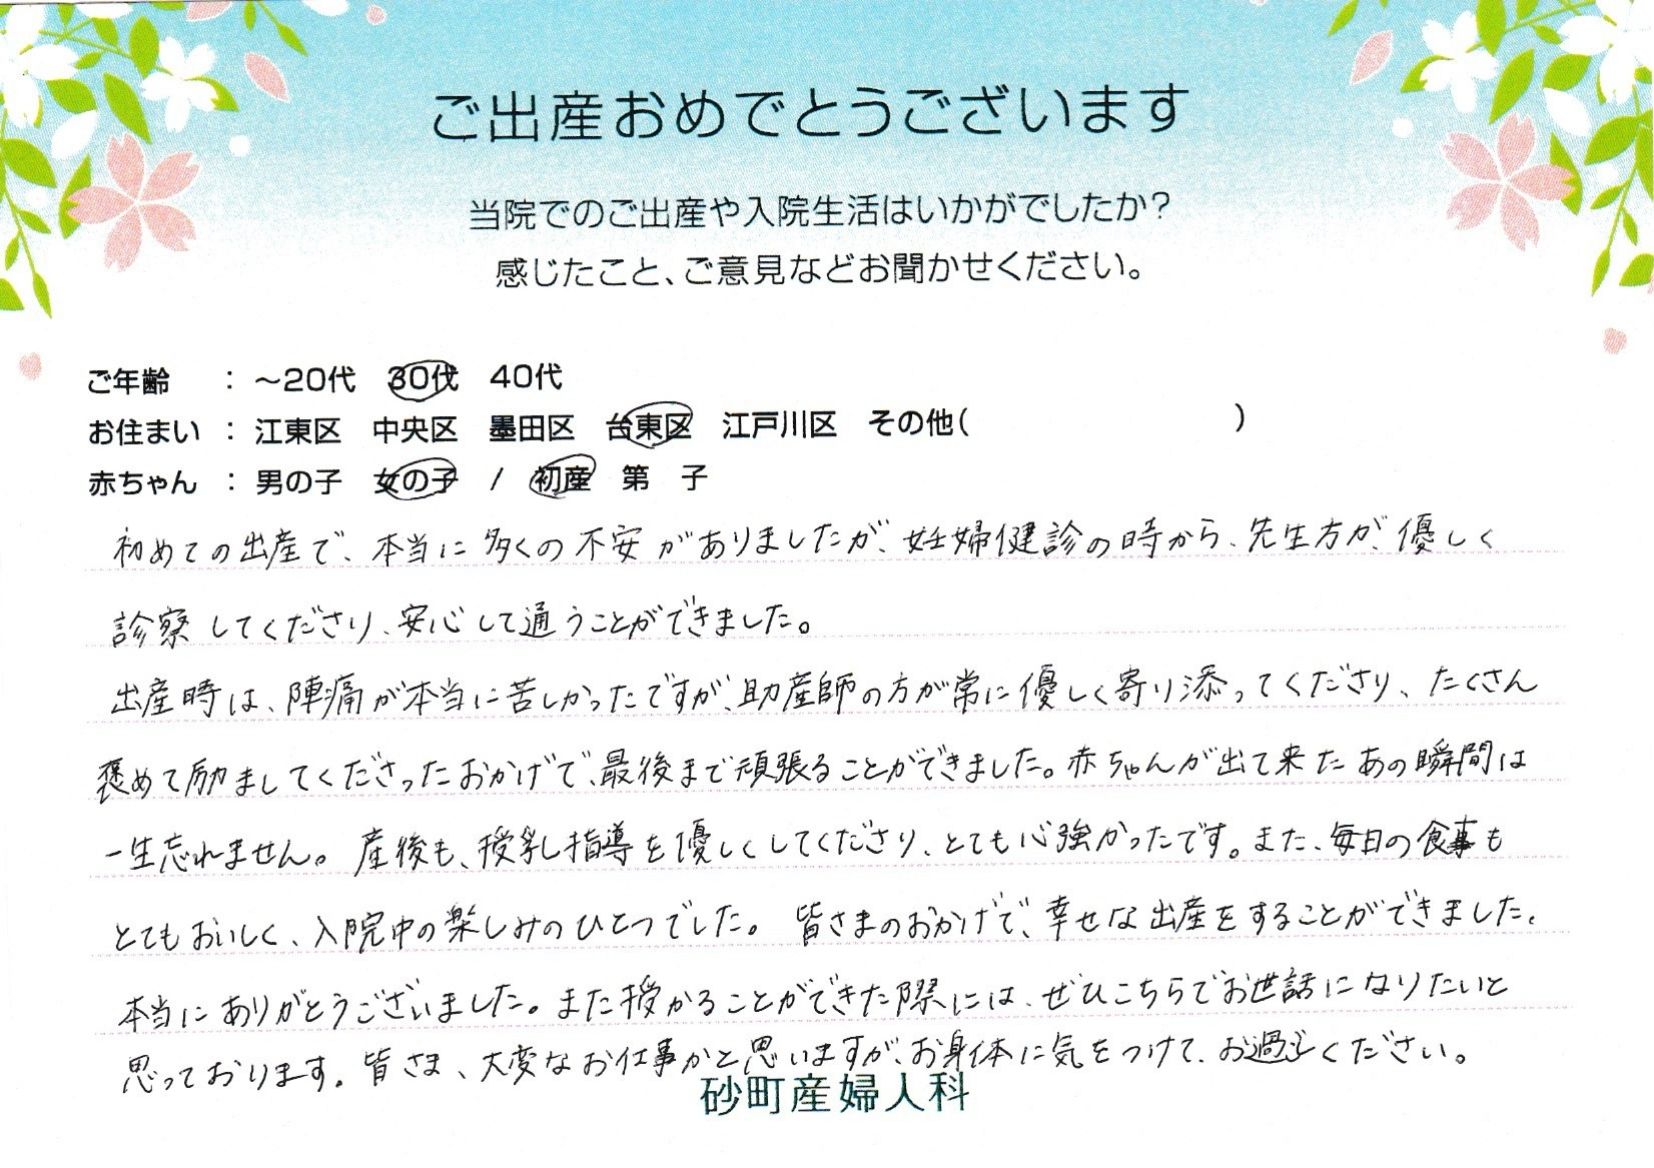 ご出産おめでとうございます
当院でのご出産や入院生活はいかがでしたか?
感じたこと、ご意見などお聞かせください。
ご年齢 : ～20代 30代 40代
お住まい : 江東区 中央区 墨田区 台東区 江戸川区 その他( )
赤ちゃん : 男の子 女の子 / 初産 第 子
初めての出産で、本当に多くの不安がありましたが、妊婦健診の時から、先生方が、優しく
診察してくださり、安心して通うことができました。
出産時は、陣痛が本当に苦しかったですが、助産師の方が常に優しく寄り添ってくださり、たくさん
褒めて励ましてくださったおかげで、最後まで頑張ることができました。赤ちゃんが出て来たあの瞬間は
一生忘れません。産後も、授乳指導を優しくしてくださり、とても心強かったです。また、毎日の食事も
とてもおいしく、入院中の楽しみのひとつでした。 皆さまのおかげで、幸せな出産をすることができました。
本当にありがとうございました。また授かることができた際には、ぜひこちらでお世話になりたいと
思っております。皆さま、大変なお仕事かと思いますが、お身体に気をつけて、お過ごしください。
砂町産婦人科